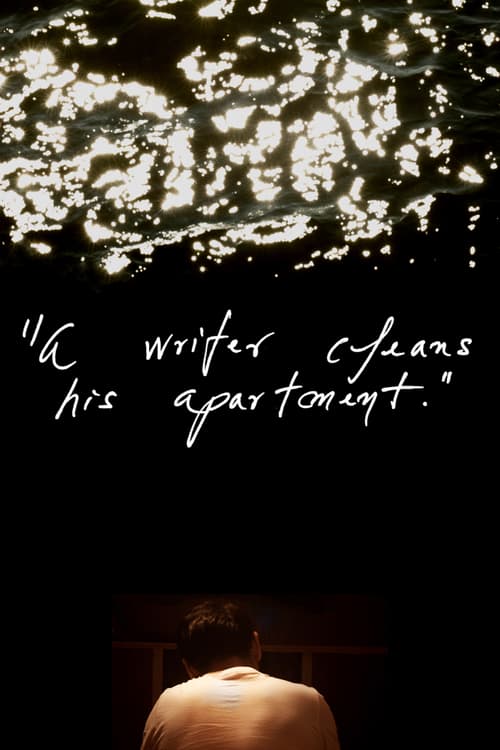 "A writer cleans
his apartment."